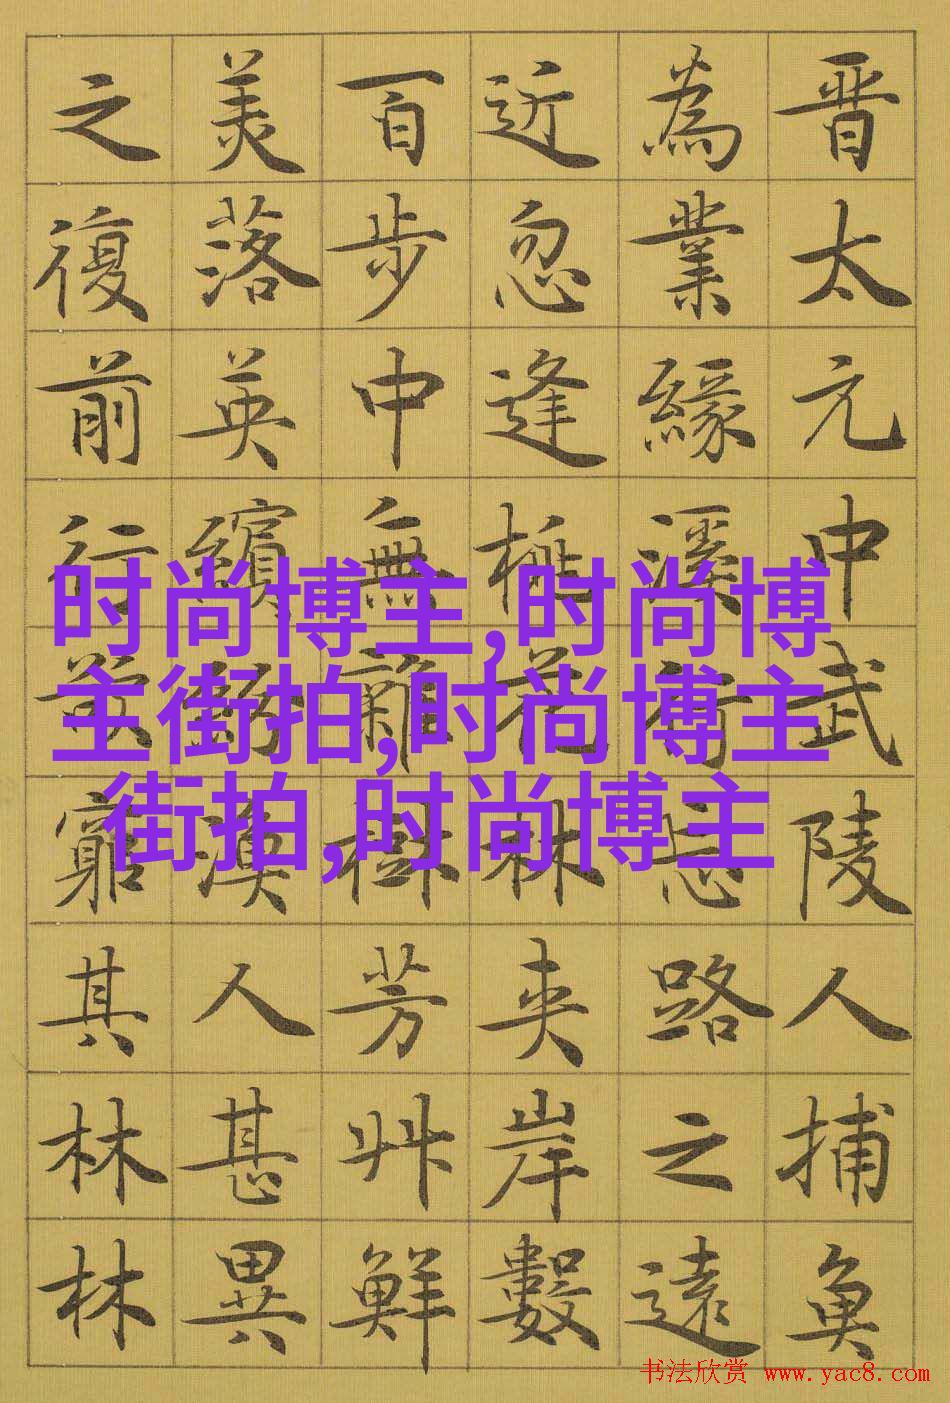 晋太元中武陵人捕魚
為業緣溪行忘路之遠
近忽逢桃花林夾岸數
百步中無雜樹芳艸鮮
美落英繽紛漁人甚異
之復前行欲窮其林林
时尚博主,时尚博
主街拍,时尚博主
街拍,时尚博主
书法欣赏 www.yac8.com